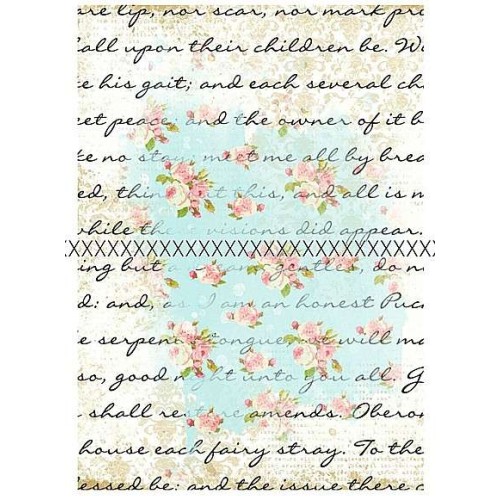 are lip, nor scar, nor mark pro
all upon their children be. W
e his gait; and each several ch
et peace; and the owner of it b
ke no stay; meet me all by brea
ed, think this, and all is m
while these visions did appear.
ing but a dream, gentles, do n
d: and, as I am an honest Puc
e serpent's tongue, it will ma
so, good night unto you all. G
shall restore amends. Oberon
house each fairy stray. To the
essed be: and the issue there c